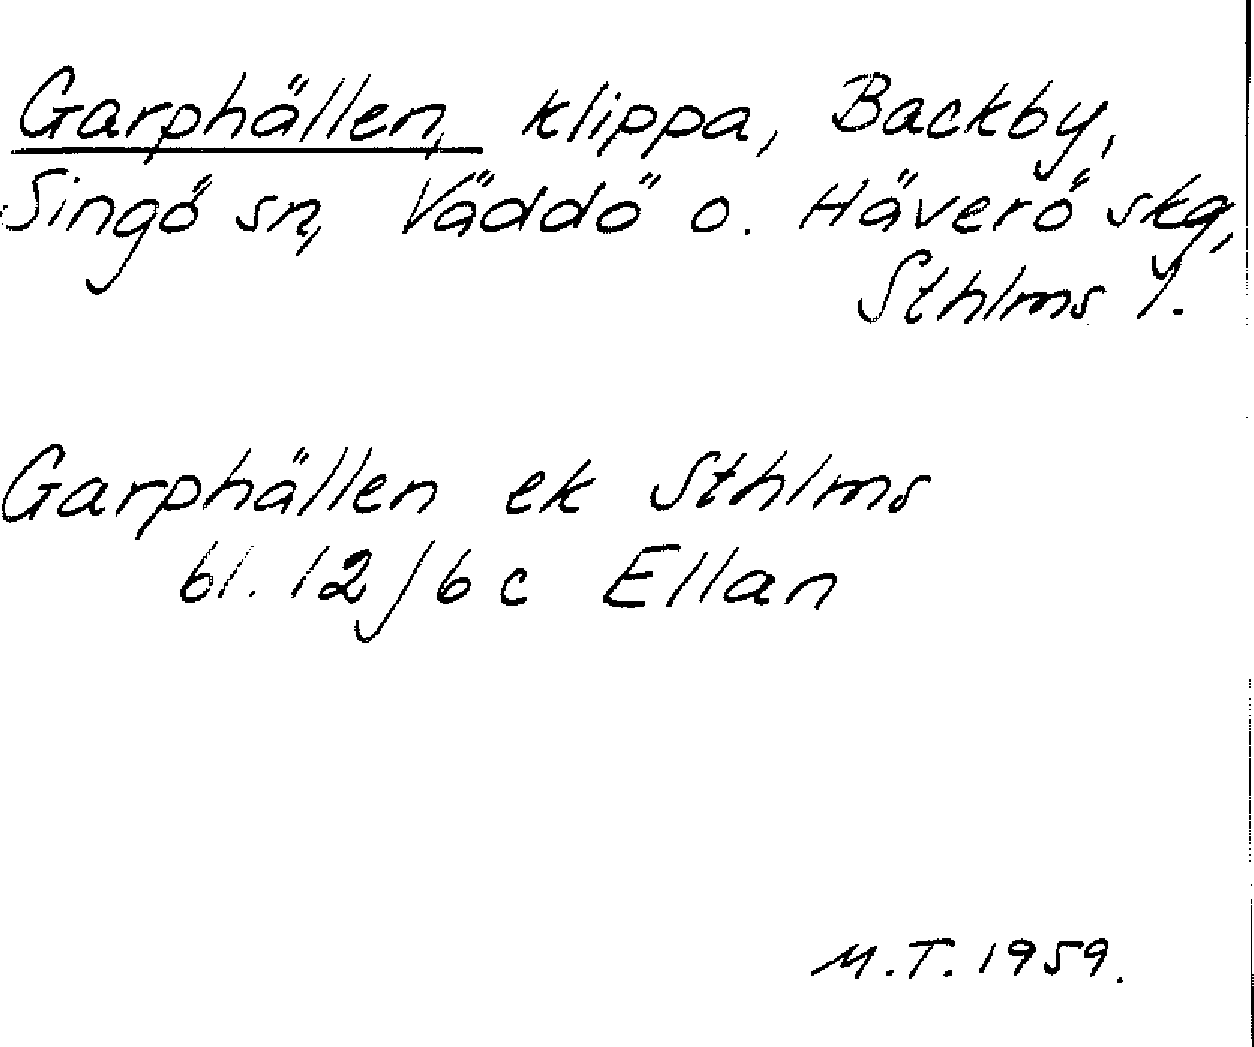 Garphällen, klippa, Backby,
Singö sn, Väddö o. Häverö skg,
Sthlms l.
Garphällen ek Sthlms
bl. 12 J 6 c Ellan
M.T. 1959.